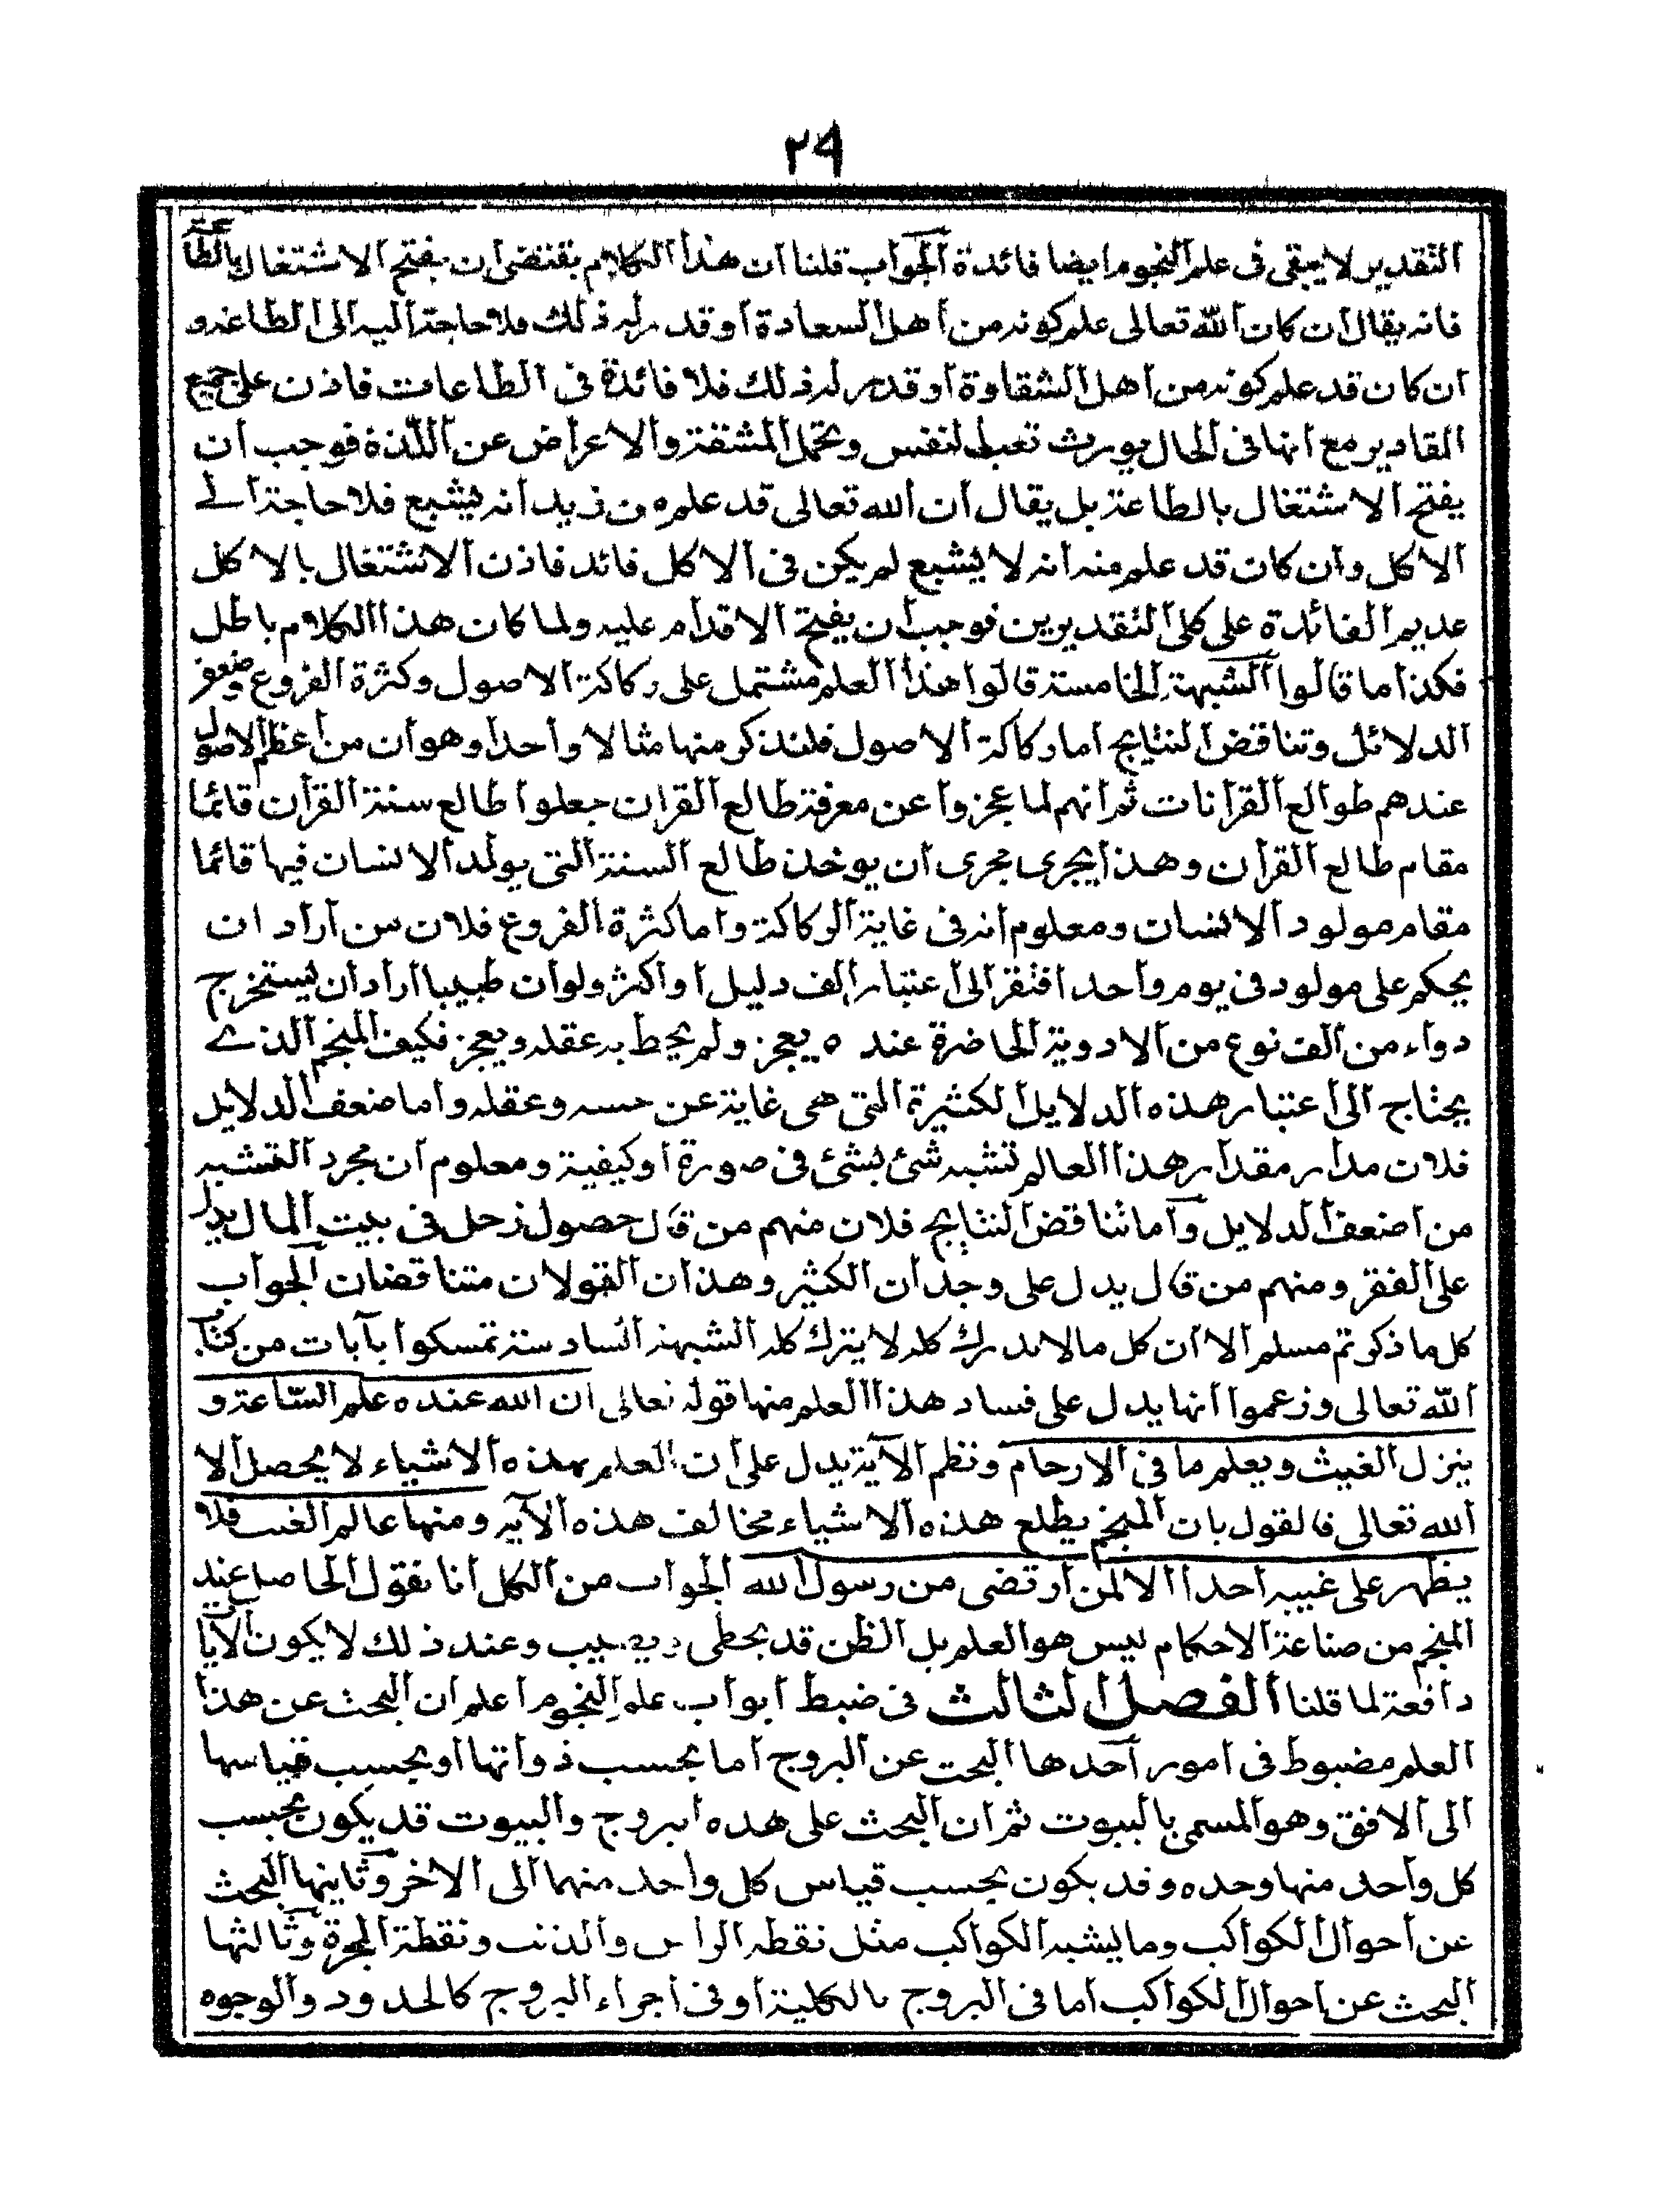 ٢٩
التقدير لا يبقى فى علم النجوم ايضا فائدة الجواب قلنا ان هذا الكلام يقتضى ان يفتح الاشتغال بالطاعة
فانه يقال ان كان الله تعالى علم كونه من اهل السعادة او قدر له ذلك فلا حاجة اليه الى الطاعة و
ان كان قد علم كونه من اهل الشقاوة او قدر له ذلك فلا فائدة فى الطاعات فاذن على جميع
المقادير مع انها فى الحال يورث تعب النفس وتحمل المشقة والاعراض عن اللذة فوجب ان
يفتح الاشتغال بالطاعة بل يقال ان الله تعالى قد علم من زيد انه يشبع فلا حاجة الے
الاكل وان كان قد علم منه انه لا يشبع لم يكن فى الاكل فائد فاذن الاشتغال بالاكل
عديم الفائدة على كلى التقديرين فوجب ان يفتح الاقدام عليه ولما كان هذا الكلام باطل
فكذا ما قالوا الشبهة الخامسة قالوا هذا العلم مشتمل على ركاكة الاصول وكثرة الفروع وضعف
الدلائل وتناقض النتايج اما ركاكة الاصول فلنذكر منها مثالا واحدا وهو ان من اعظم الاصول
عندهم طوالع القرانات ثم انهم لما عجزوا عن معرفة طالع القران جعلوا طالع سنة القرآن قائما
مقام طالع القرآن وهذا يجرى مجرى ان يوخذ طالع السنة التى يولد الانسان فيها قائما
مقام مولود الانسان ومعلوم انه فى غاية الركاكة واما كثرة الفروع فلان من اراد ان
يحكم على مولود فى يوم واحد افتقر الى اعتبار الف دليل او اكثر ولو ان طبيبا اراد ان يستخرج
دواء من الف نوع من الادوية الحاضرة عنده يعجز ولم يحط به عقله ويعجز فكيف المنجم الذے
يحتاج الى اعتبار هذه الدلايل الكثيرة التى هى غاية عن حسه وعقله واما ضعف الدلايل
فلان مدار مقدار هذا العالم تشبه شئ بشئ فى صورة او كيفية ومعلوم ان مجرد التشبه
من اضعف الدلايل واما تناقض النتايج فلان منهم من قال حصول زحل فى بيت المال يدل
على الفقر ومنهم من قال يدل على وجدان الكثير وهذان القولان متناقضان الجواب
كل ما ذكرتم مسلم الا ان كل ما لا يدرك كله لا يترك كله الشبهة السادسة تمسكوا بآيات من كتاب
الله تعالى وزعموا انها يدل على فساد هذا العلم منها قوله تعالى ان الله عنده علم الساعة و
ينزل الغيث ويعلم ما فى الارحام ونظم الآية يدل على ان العلم بهذه الاشياء لا يحصل الا
الله تعالى فالقول بان المنجم يطلع هذه الاشياء مخالف هذه الآيه ومنها عالم الغيب فلا
يظهر على غيبه احدا الا لمن ارتضى من رسول الله الجواب من الكل انا نقول الحاصل عند
المنجم من صناعة الاحكام ليس هو العلم بل الظن قد يخطى ويصيب وعند ذلك لا يكون الآيات
دافعة لما قلنا الفصل الثالث فى ضبط ابواب علم النجوم اعلم ان البحث عن هذا
العلم مضبوط فى امور احدها البحث عن البروج اما بحسب ذواتها او بحسب قياسها
الى الافق وهو المسمى بالبيوت ثم ان البحث على هذه البروج والبيوت قد يكون بحسب
كل واحد منها وحده وقد يكون بحسب قياس كل واحد منهما الى الاخر وثانيها البحث
عن احوال الكواكب وما يشبه الكواكب مثل نقطه الراس والذنب ونقطة المجرة وثالثها
البحث عن احوال الكواكب اما فى البروج بالكلية او فى اجزاء البروج كالحدود والوجوه